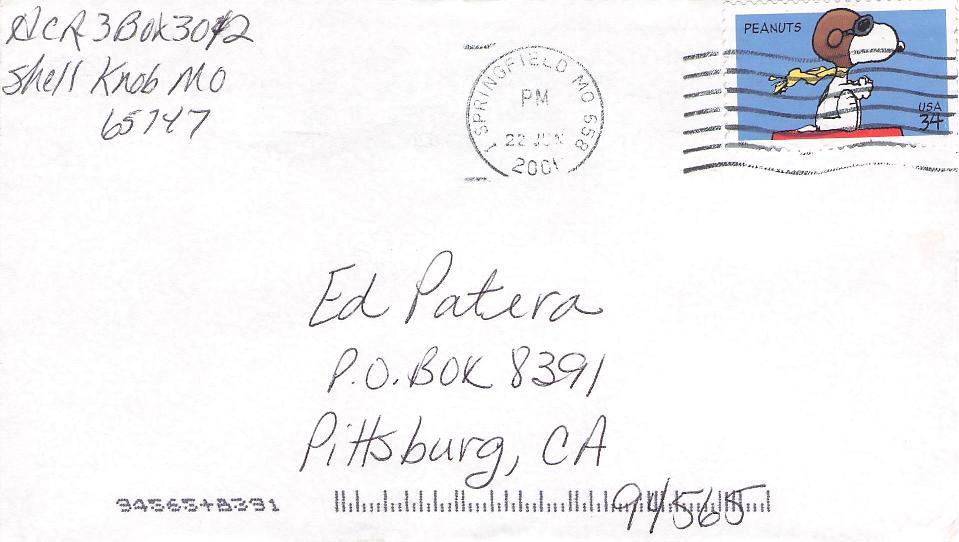 HCR 3 Box 3012
Shell Knob MO
65747
SPRINGFIELD MO 658
PM
22 JUN
2001
PEANUTS
USA
34
Ed Patera
P.O. Box 8391
Pittsburg, CA
94565
94565+8391